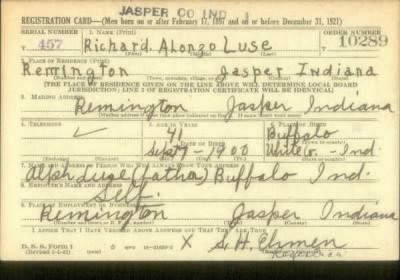 JASPER CO IND 1
REGISTRATION CARD—(Men born on or after February 17, 1897 and on or before December 31, 1921)
SERIAL NUMBER 1. NAME (Print) ORDER NUMBER
T 457 Richard Alonzo Luse 10289
2. PLACE OF RESIDENCE (Print)
Remington Jasper Indiana
(Town, township, village, or city) (County) (State)
[THE PLACE OF RESIDENCE GIVEN ON THE LINE ABOVE WILL DETERMINE LOCAL BOARD
JURISDICTION; LINE 2 OF REGISTRATION CERTIFICATE WILL BE IDENTICAL]
3. MAILING ADDRESS
Remington Jasper Indiana
4. TELEPHONE 5. AGE IN YEARS 6. PLACE OF BIRTH
41 Buffalo
DATE OF BIRTH
Sept 9 - 1900 White Co - Ind.
(Exchange) (Number) (Mo.) (Day) (Yr.) (State or country)
7. NAME AND ADDRESS OF PERSON WHO WILL ALWAYS KNOW YOUR ADDRESS
Luse (father) Buffalo Ind.
8. EMPLOYER'S NAME AND ADDRESS
9. PLACE OF EMPLOYMENT OR BUSINESS
Remington Jasper Indiana
I AFFIRM THAT I HAVE VERIFIED ABOVE ANSWERS AND THAT THEY ARE TRUE.
D. S. S. Form 1
X S. H. Ehmen